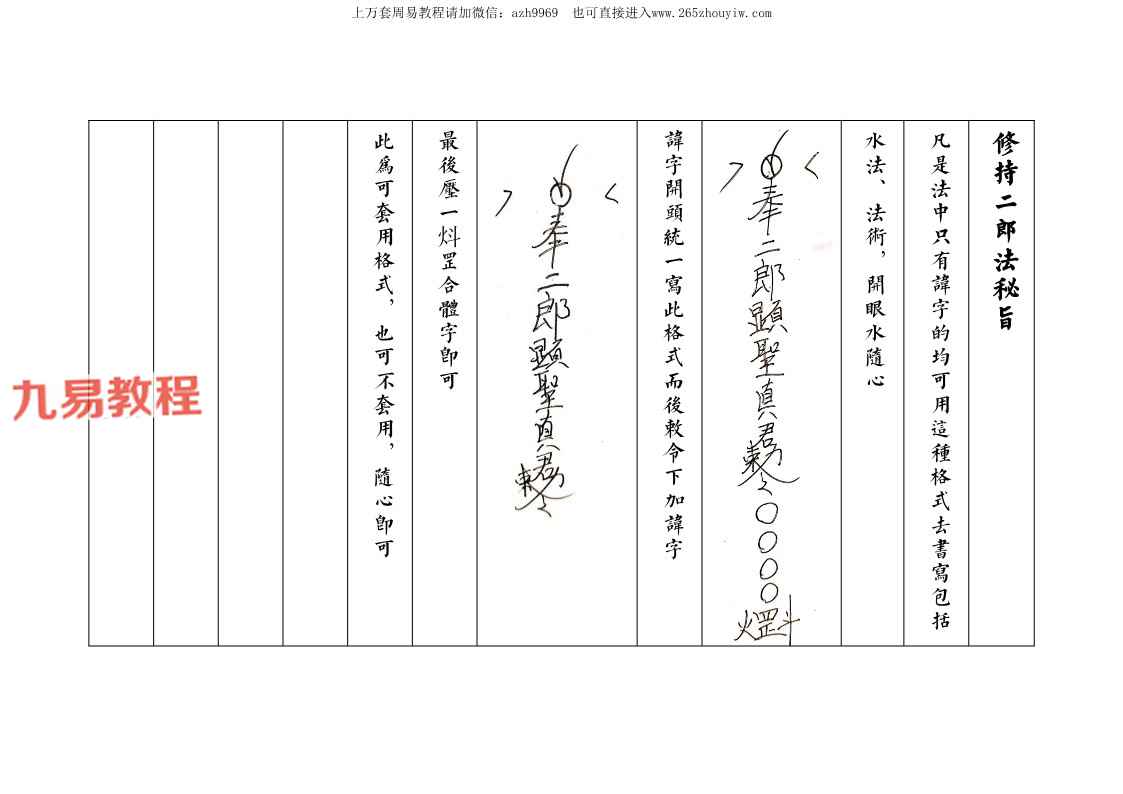 上万套周易教程请加微信：azh9969 也可直接进入www.265zhouyiw.com
修持二郎法秘旨
凡是法中只有諱字的均可用這種格式去書寫包括
水法、法術，開眼水隨心
奉二郎顯聖真君勢令〇〇〇〇
火罡斗
諱字開頭統一寫此格式而後敕令下加諱字
奉二郎顯聖真君
最後壓一炓罡合體字卽可
此爲可套用格式，也可不套用，隨心卽可
九易教程